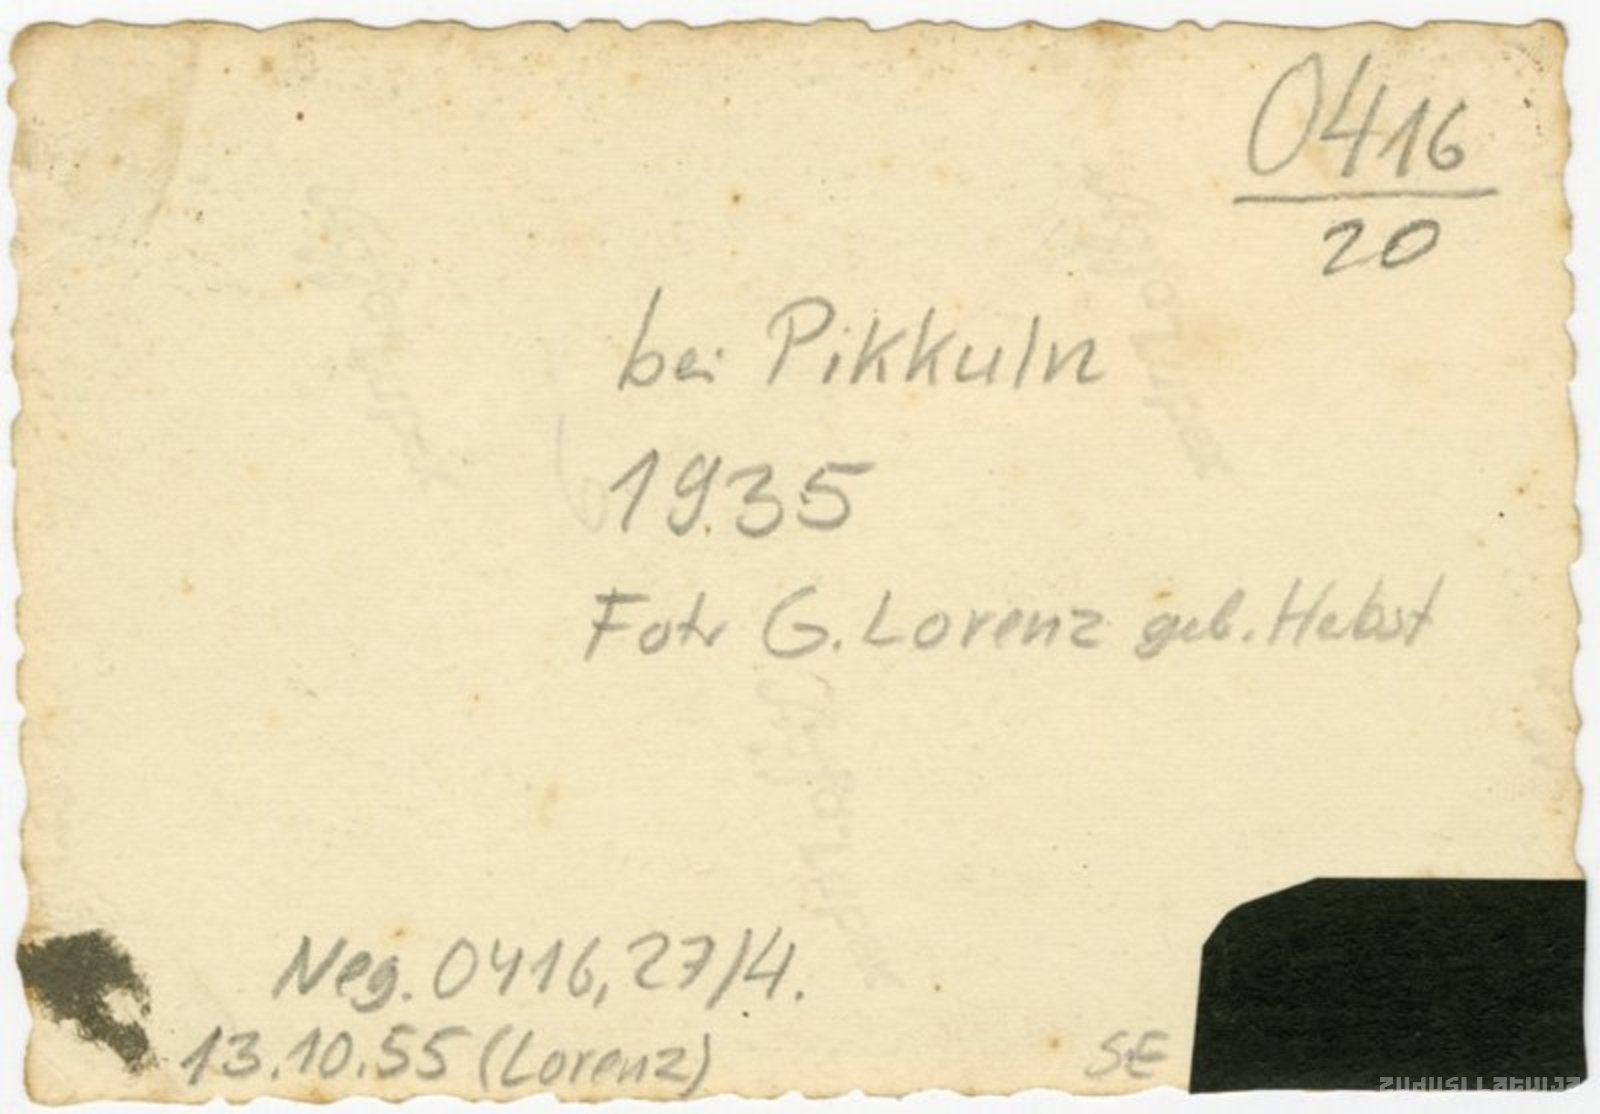 0416
20
bei Pikkuln
1935
Foto G. Lorenz geb. Hebst
Neg. 0416, 27/4.
13.10.55 (Lorenz)
SE
zudusi Latvija